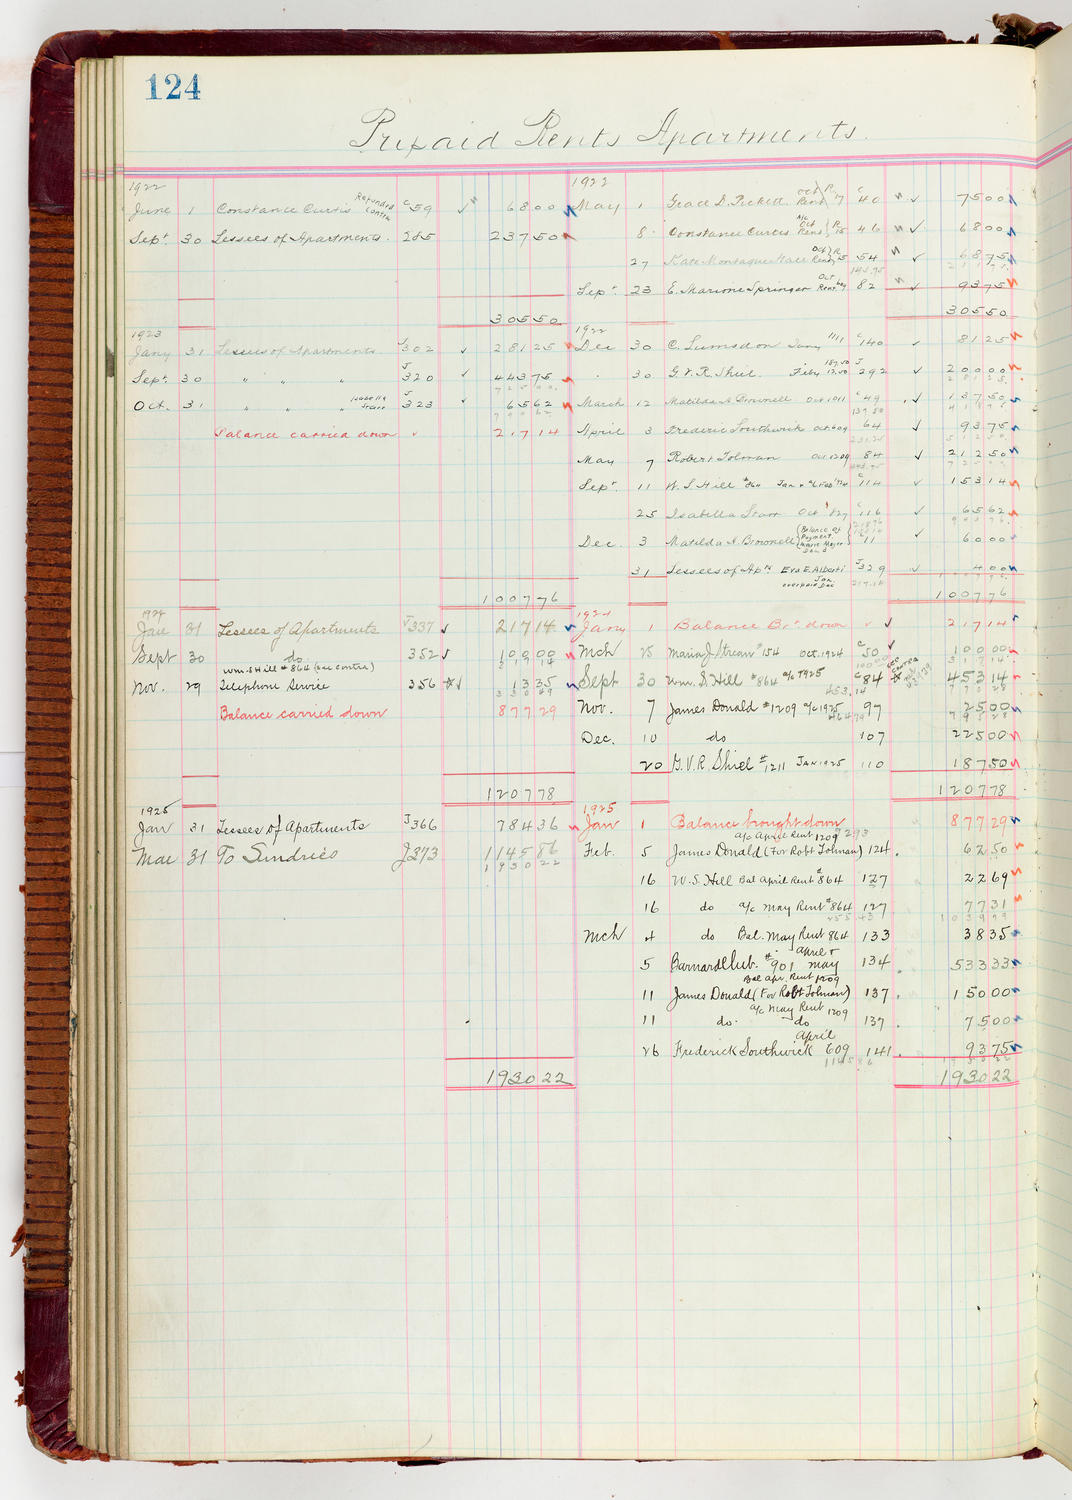 124
Prepaid Rents Apartments.
1922
June 1 Constance Curtis Refunded Contra C59 6800
Sept 30 Lessees of Apartments. 285 23750
30550
1923
Jany 31 Lessees of Apartments J302 28125
Sept 30 " " " J320 44375
72500
Oct. 31 " " " Isabella Starr J323 6562
79062
Balance carried down 21714
100776
1924
Jan 31 Lessees of Apartments J337 21714
Sept 30 do 352 10000
31714
Wm. S Hill #864 (see contra)
Nov. 29 Telephone Service 356 1335
33049
Balance carried down 87729
120778
1925
Jan 31 Lessees of Apartments J366 78436
Mar 31 To Sundries J373 114586
193022
1922
May 1 Grace D. Pickett Oct Rent C40 7500
8 Constance Curtis a/c Oct Rent 46 6800
27 Kate Montague Hall Oct Rent 54 6875
143.75
Sept. 23 E. Marione Springer Oct. Rent 82 9375
30550
1922
Dec 30 C. Lumsdon Jany 1111 C140 8125
30 G.V.R. Shiel Feby 187.50 12.50 J292 20000
28125
March 12 Matilda A. Brownell Oct 1011 C49 13750
41875
137.50
April 3 Frederic Southwick Oct. 609 64 9375
51250
231.25
May 7 Robert Tolman Oct. 1209 84 21250
72500
443.75
Sept. 11 W. S. Hill #864 Jan & a/c Feb 1924 C114 15314
25 Isabella Starr Oct 827 C116 6562
Dec. 3 Matilda A. Brownell (Balance of Payment. 11 6000
31 Lessees of Apts Eva E. Alberti J329 400
overpaid Dec Jan. 217.14
100776
1924
Jany 1 Balance Bt. down 21714
Mch 25 Maria J. Strean #154 Oct. 1924 C50 10000
31714
Sept 30 Wm. S. Hill #864 a/c 1925 C84 45314 see contra
77028
453.14
Nov. 7 James Donald #1209 a/c 1925 97 2500
79528
Dec. 10 do 107 22500
20 G.V.R. Shiel #1211 Jan 1925 110 18750
120778
1925
Jan 1 Balance brought down 87729
a/c April Rent 1209
Feb. 5 James Donald (For Robt Tolman) 124. 6250
16 W. S. Hill Bal April Rent #864 127 2269
16 do a/c May Rent #864 127 7731
103979
Mch 4 do Bal. May Rent 864 133 3835
5 Barnard Club. #901 April & May 134 53333
Bal Apr. Rent 1209
11 James Donald (For Robt Tolman) 137. 15000
a/c May Rent 1209
11 do. do 137 7500
April
26 Frederick Southwick 609 141. 9375
114586
193022
193022